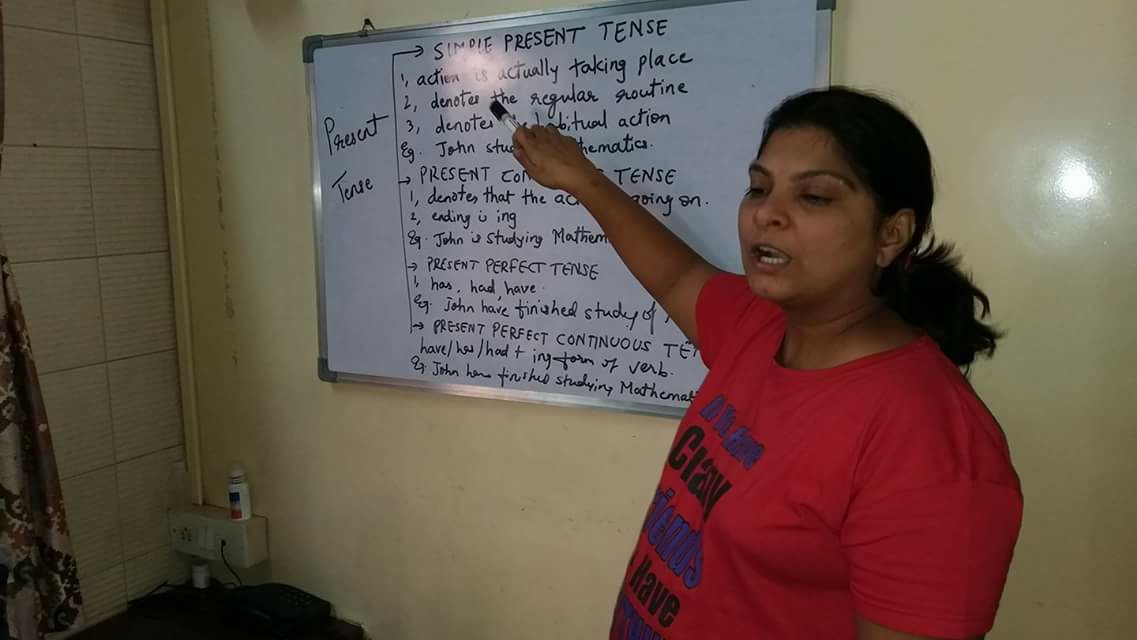 SIMPLE PRESENT TENSE
1, action is actually taking place
2, denotes the regular routine
3, denotes habitual action
Eg. John
Present
Tense
PRESENT TENSE
1, denotes that the going on.
2, ending is ing
Eg. John is studying
PRESENT PERFECT TENSE
1, has, had, have.
Eg. John have finished study of
PRESENT PERFECT CONTINUOUS
have/has/had + ing form of verb.
Eg. John have finished studying
Crazy
Have